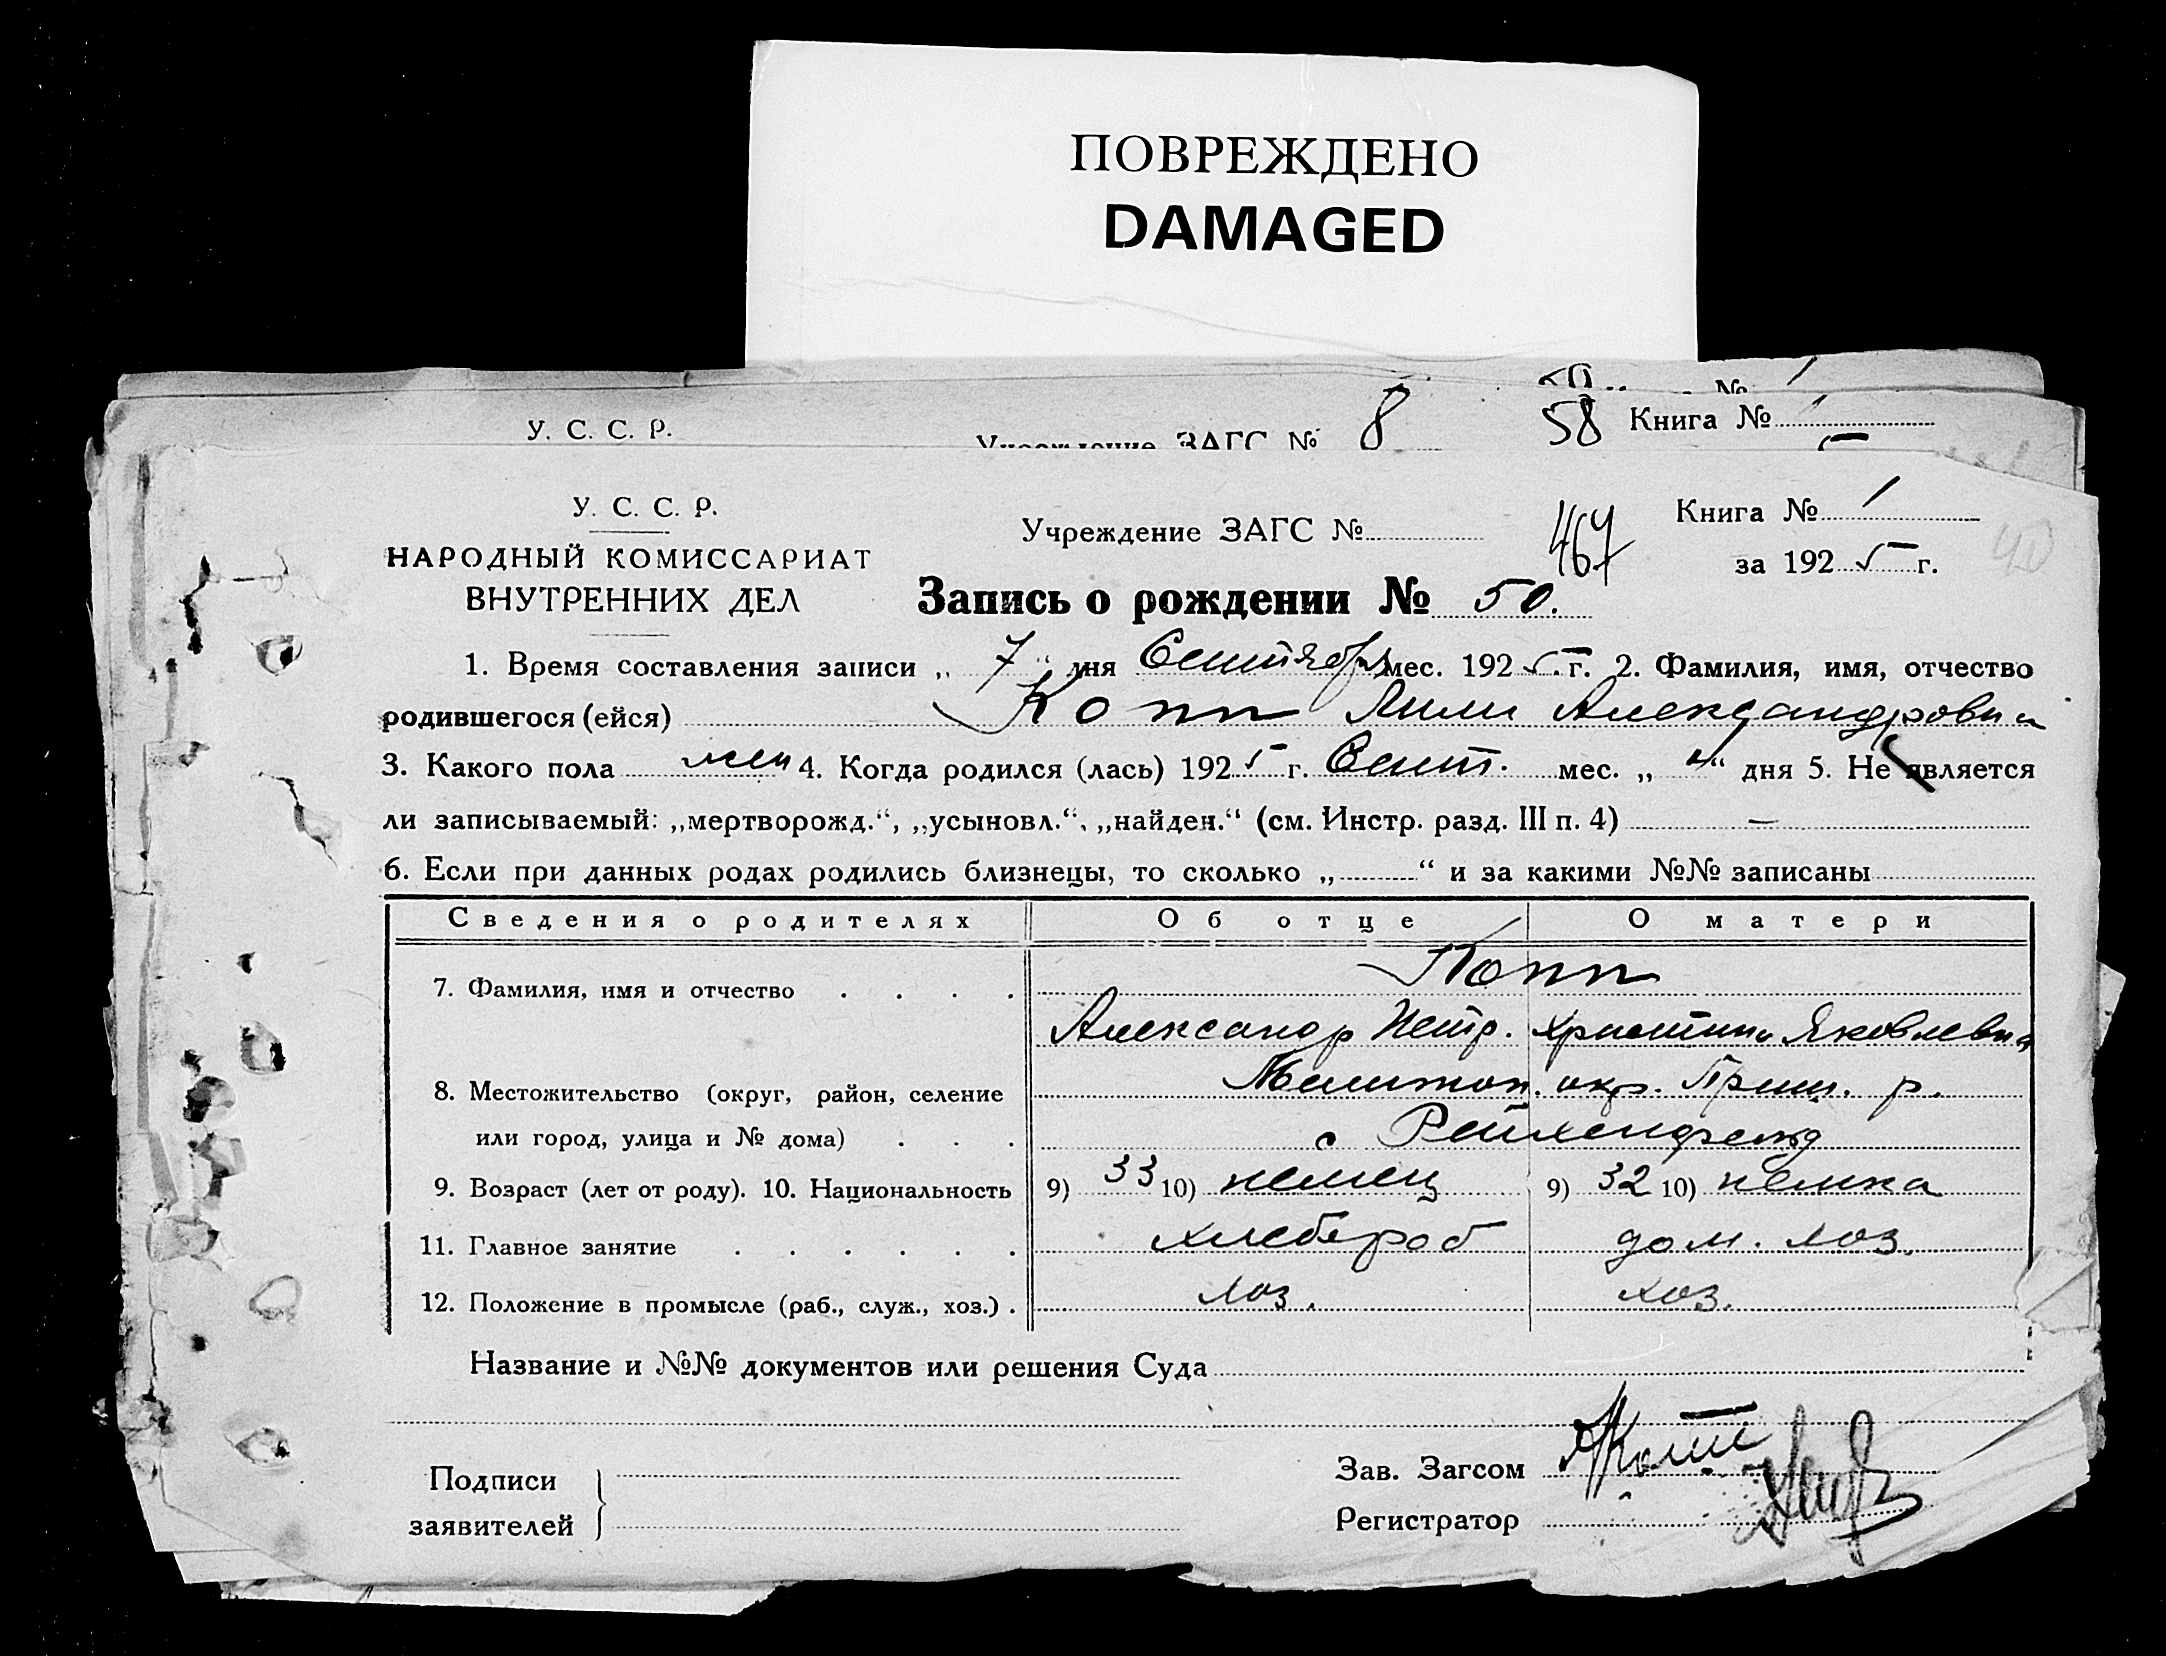 ПОВРЕЖДЕНО
DAMAGED
№ 1
У. С. С. Р.
Учреждение ЗАГС № 8
58 Книга № 1
У. С. С. Р.
НАРОДНЫЙ КОМИССАРИАТ
ВНУТРЕННИХ ДЕЛ
Учреждение ЗАГС №
467
Книга № 1
за 1925 г.
40
Запись о рождении № 50.
1. Время составления записи „ 7 “ дня Сентября мес. 1925 г. 2. Фамилия, имя, отчество
родившегося (ейся) Копп Лили Александровна
3. Какого пола жен 4. Когда родился (лась) 1925 г. Сент. мес. „ 4 “ дня 5. Не является
ли записываемый: „мертворожд.“, „усыновл.“, „найден.“ (см. Инстр. разд. III п. 4) —
6. Если при данных родах родились близнецы, то сколько „ “ и за какими №№ записаны
Сведения о родителях Об отце О матери
7. Фамилия, имя и отчество . . . . Копп
Александр Петр. Христина Яковлевна
8. Местожительство (округ, район, селение Мелитоп. окр. Приш. р.
или город, улица и № дома) . . . с Рейхенфельд
9. Возраст (лет от роду). 10. Национальность 9) 33 10) немец 9) 32 10) немка
11. Главное занятие . . . . . . хлебороб дом. хоз.
12. Положение в промысле (раб., служ., хоз.) . хоз. хоз.
Название и №№ документов или решения Суда
Подписи
заявителей
Зав. Загсом
Регистратор